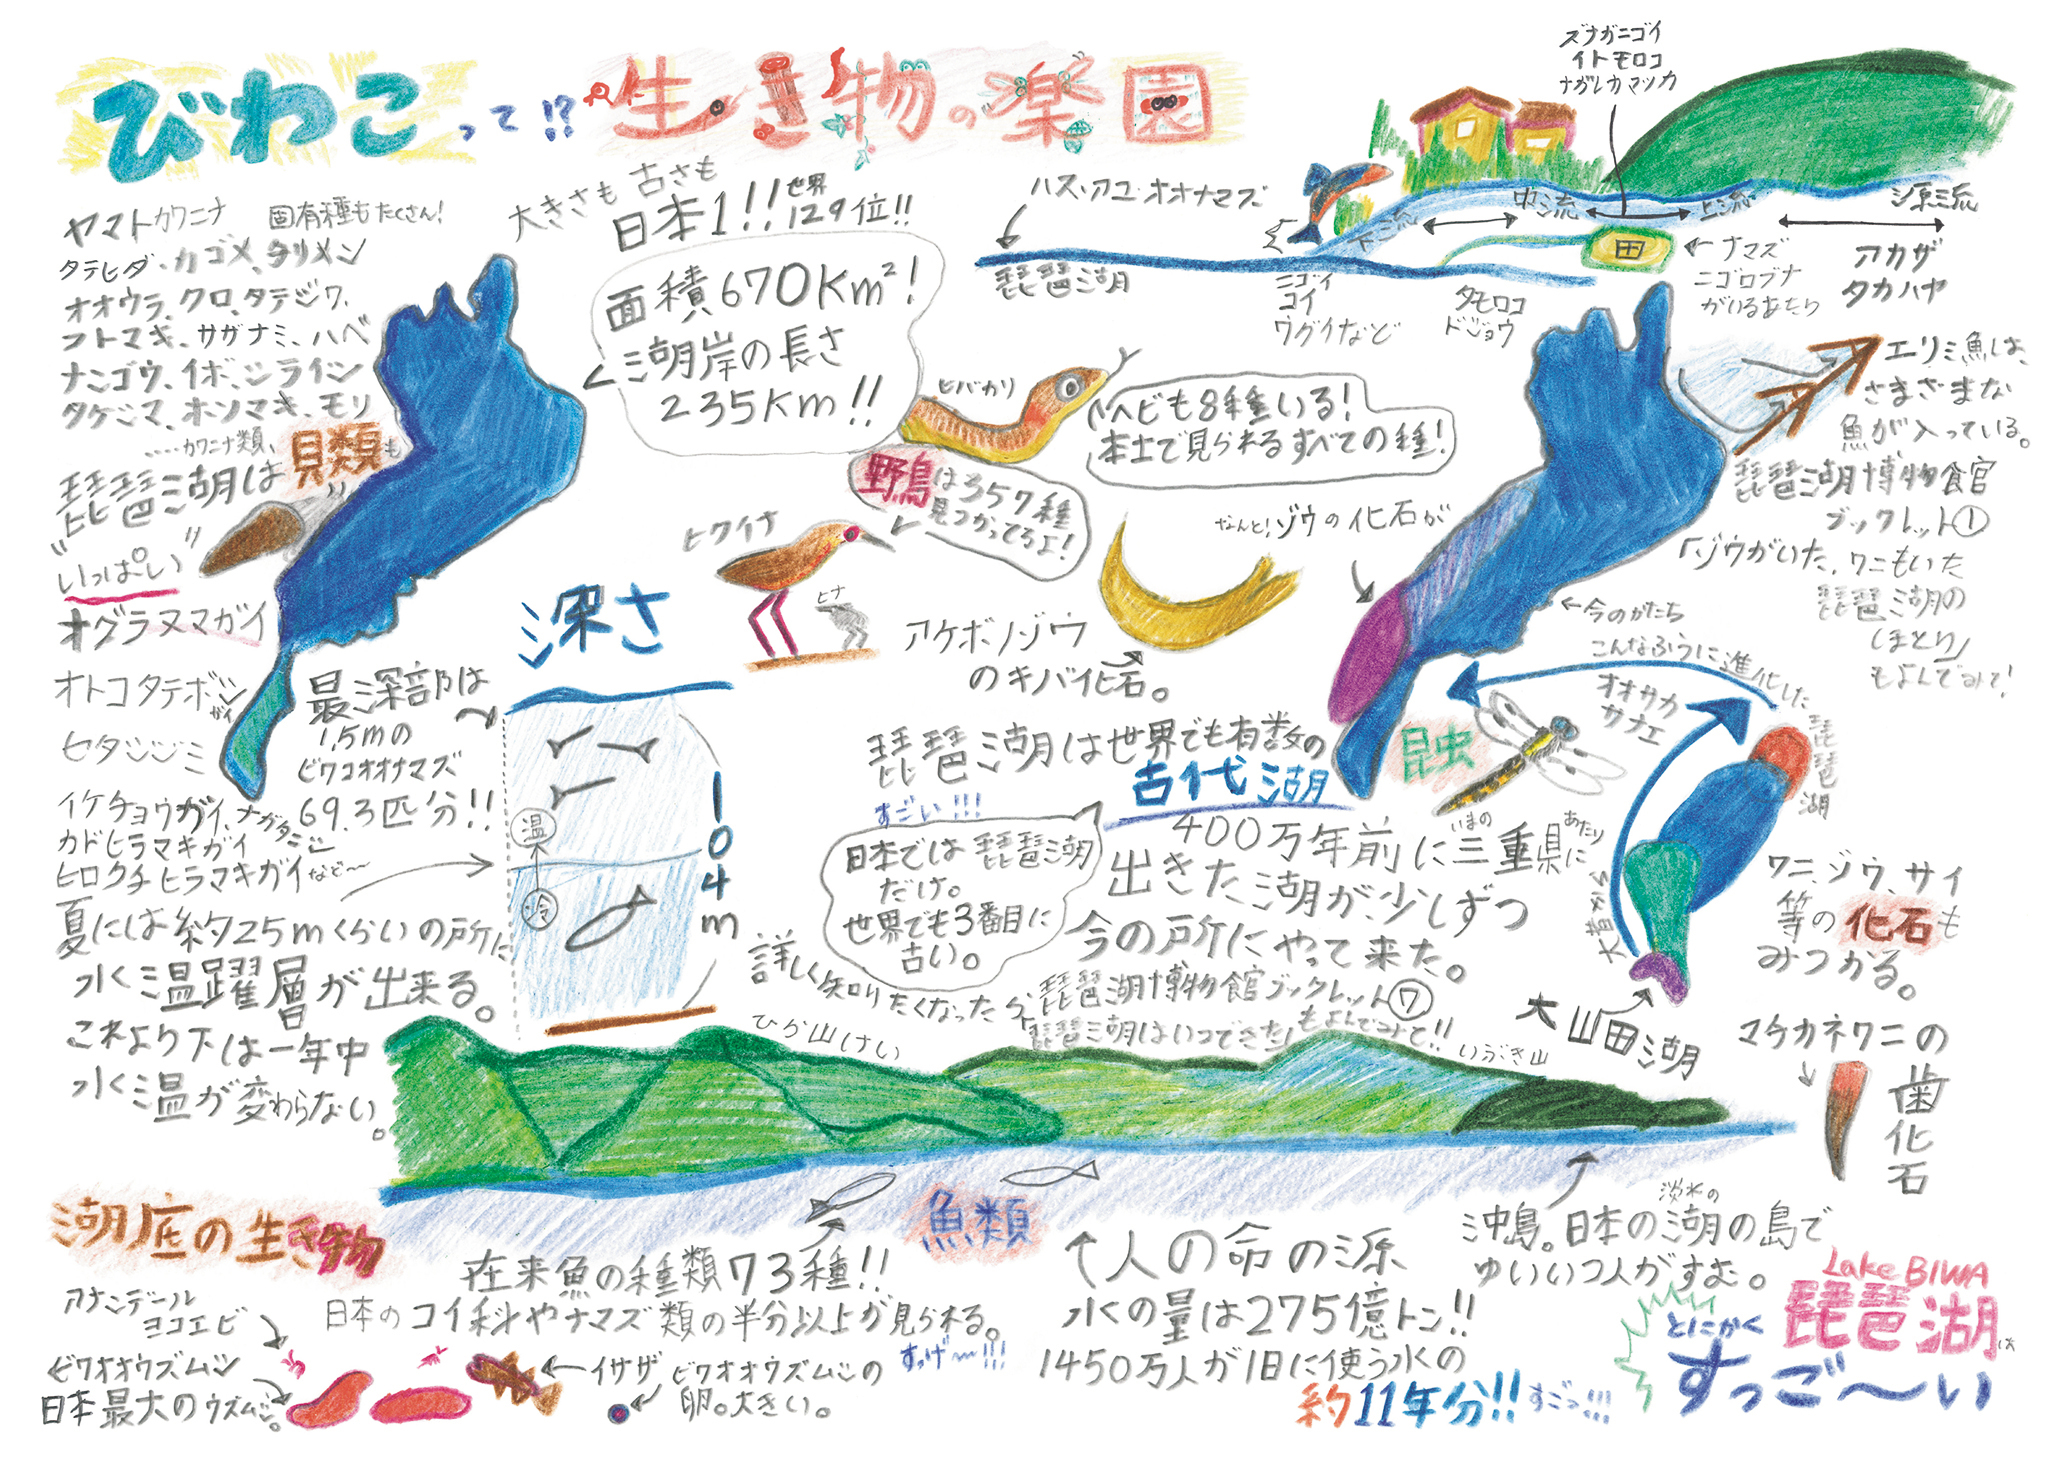 びわこって!?生き物の楽園
ヤマトカワニナ
固有種もたくさん!
タテヒダ・カゴメ、チリメン
オオウラ、クロ、タテジワ、
フトマキ、サザナミ、ハベ
ナンゴウ、イボ、シライシ
タケシマ、ホソマキ、モリ
....カワニナ類、
琵琶湖は貝類も
"いっぱい"
オグラヌマガイ
オトコタテボシガイ
セタシジミ
イケチョウガイ、ナガタニシ
カドヒラマキガイ
ヒロクチヒラマキガイなど〜
大きさも古さも
日本1!!世界129位!!
面積670Km²!
湖岸の長さ
235Km!!
ハス・アユ・オオナマズ
琵琶湖
ズナガニゴイ
イトモロコ
ナガレカマツカ
下流
中流
上流
源流
田
ニゴイ
コイ
ウグイなど
タモロコ
ドジョウ
ナマズ
ニゴロブナ
がいるあたり
アカザ
タカハヤ
ヒバカリ
ヘビも8種いる!
本土で見られるすべての種!
野鳥は357種
見つかってるよ!
ヒクイナ
ヒナ
エリ ミ魚は、
さまざまな
魚が入っている。
琵琶湖博物館
ブックレット①
「ゾウがいた、ワニもいた
琵琶湖の
ほとり」
もよんでみて!
なんと!ゾウの化石が
アケボノゾウ
のキバ化石。
←今のかたち
こんなふうに進化した
深さ
最深部は
1,5mの
ビワコオオナマズ
69.3匹分!!
温
冷
104m
夏には約25mくらいの所に
水温躍層が出来る。
これより下は一年中
水温が変わらない。
琵琶湖は世界でも有数の
古代湖
すごい!!!
日本では琵琶湖
だけ。
世界でも3番目に
古い。
400万年前に今の三重県あたりに
出きた湖が少しずつ
今の所にやって来た。
詳しく知りたくなったら琵琶湖博物館ブックレット⑦
「琵琶湖はいつできた」もよんでみて!!
昆虫
オオサカ
サナエ
琵琶湖
大昔から
大山田湖
ワニ、ゾウ、サイ
等の化石も
みつかる。
マチカネワニの
歯化石
ひら山けい
いぶき山
湖底の生き物
アナンデール
ヨコエビ
ビワオオウズムシ
日本最大のウズムシ。
イサザ
ビワオオウズムシの
卵。大きい。
魚類
在来魚の種類73種!!
日本のコイ科やナマズ類の半分以上が見られる。
すっげ〜!!!
↑人の命の源
水の量は275億トン!!
1450万人が1日に使う水の
約11年分!!すごっ!!!
沖島。日本の淡水の湖の島で
ゆいいつ人がすむ。
Lake BIWA
琵琶湖は
とにかく
すっご〜い